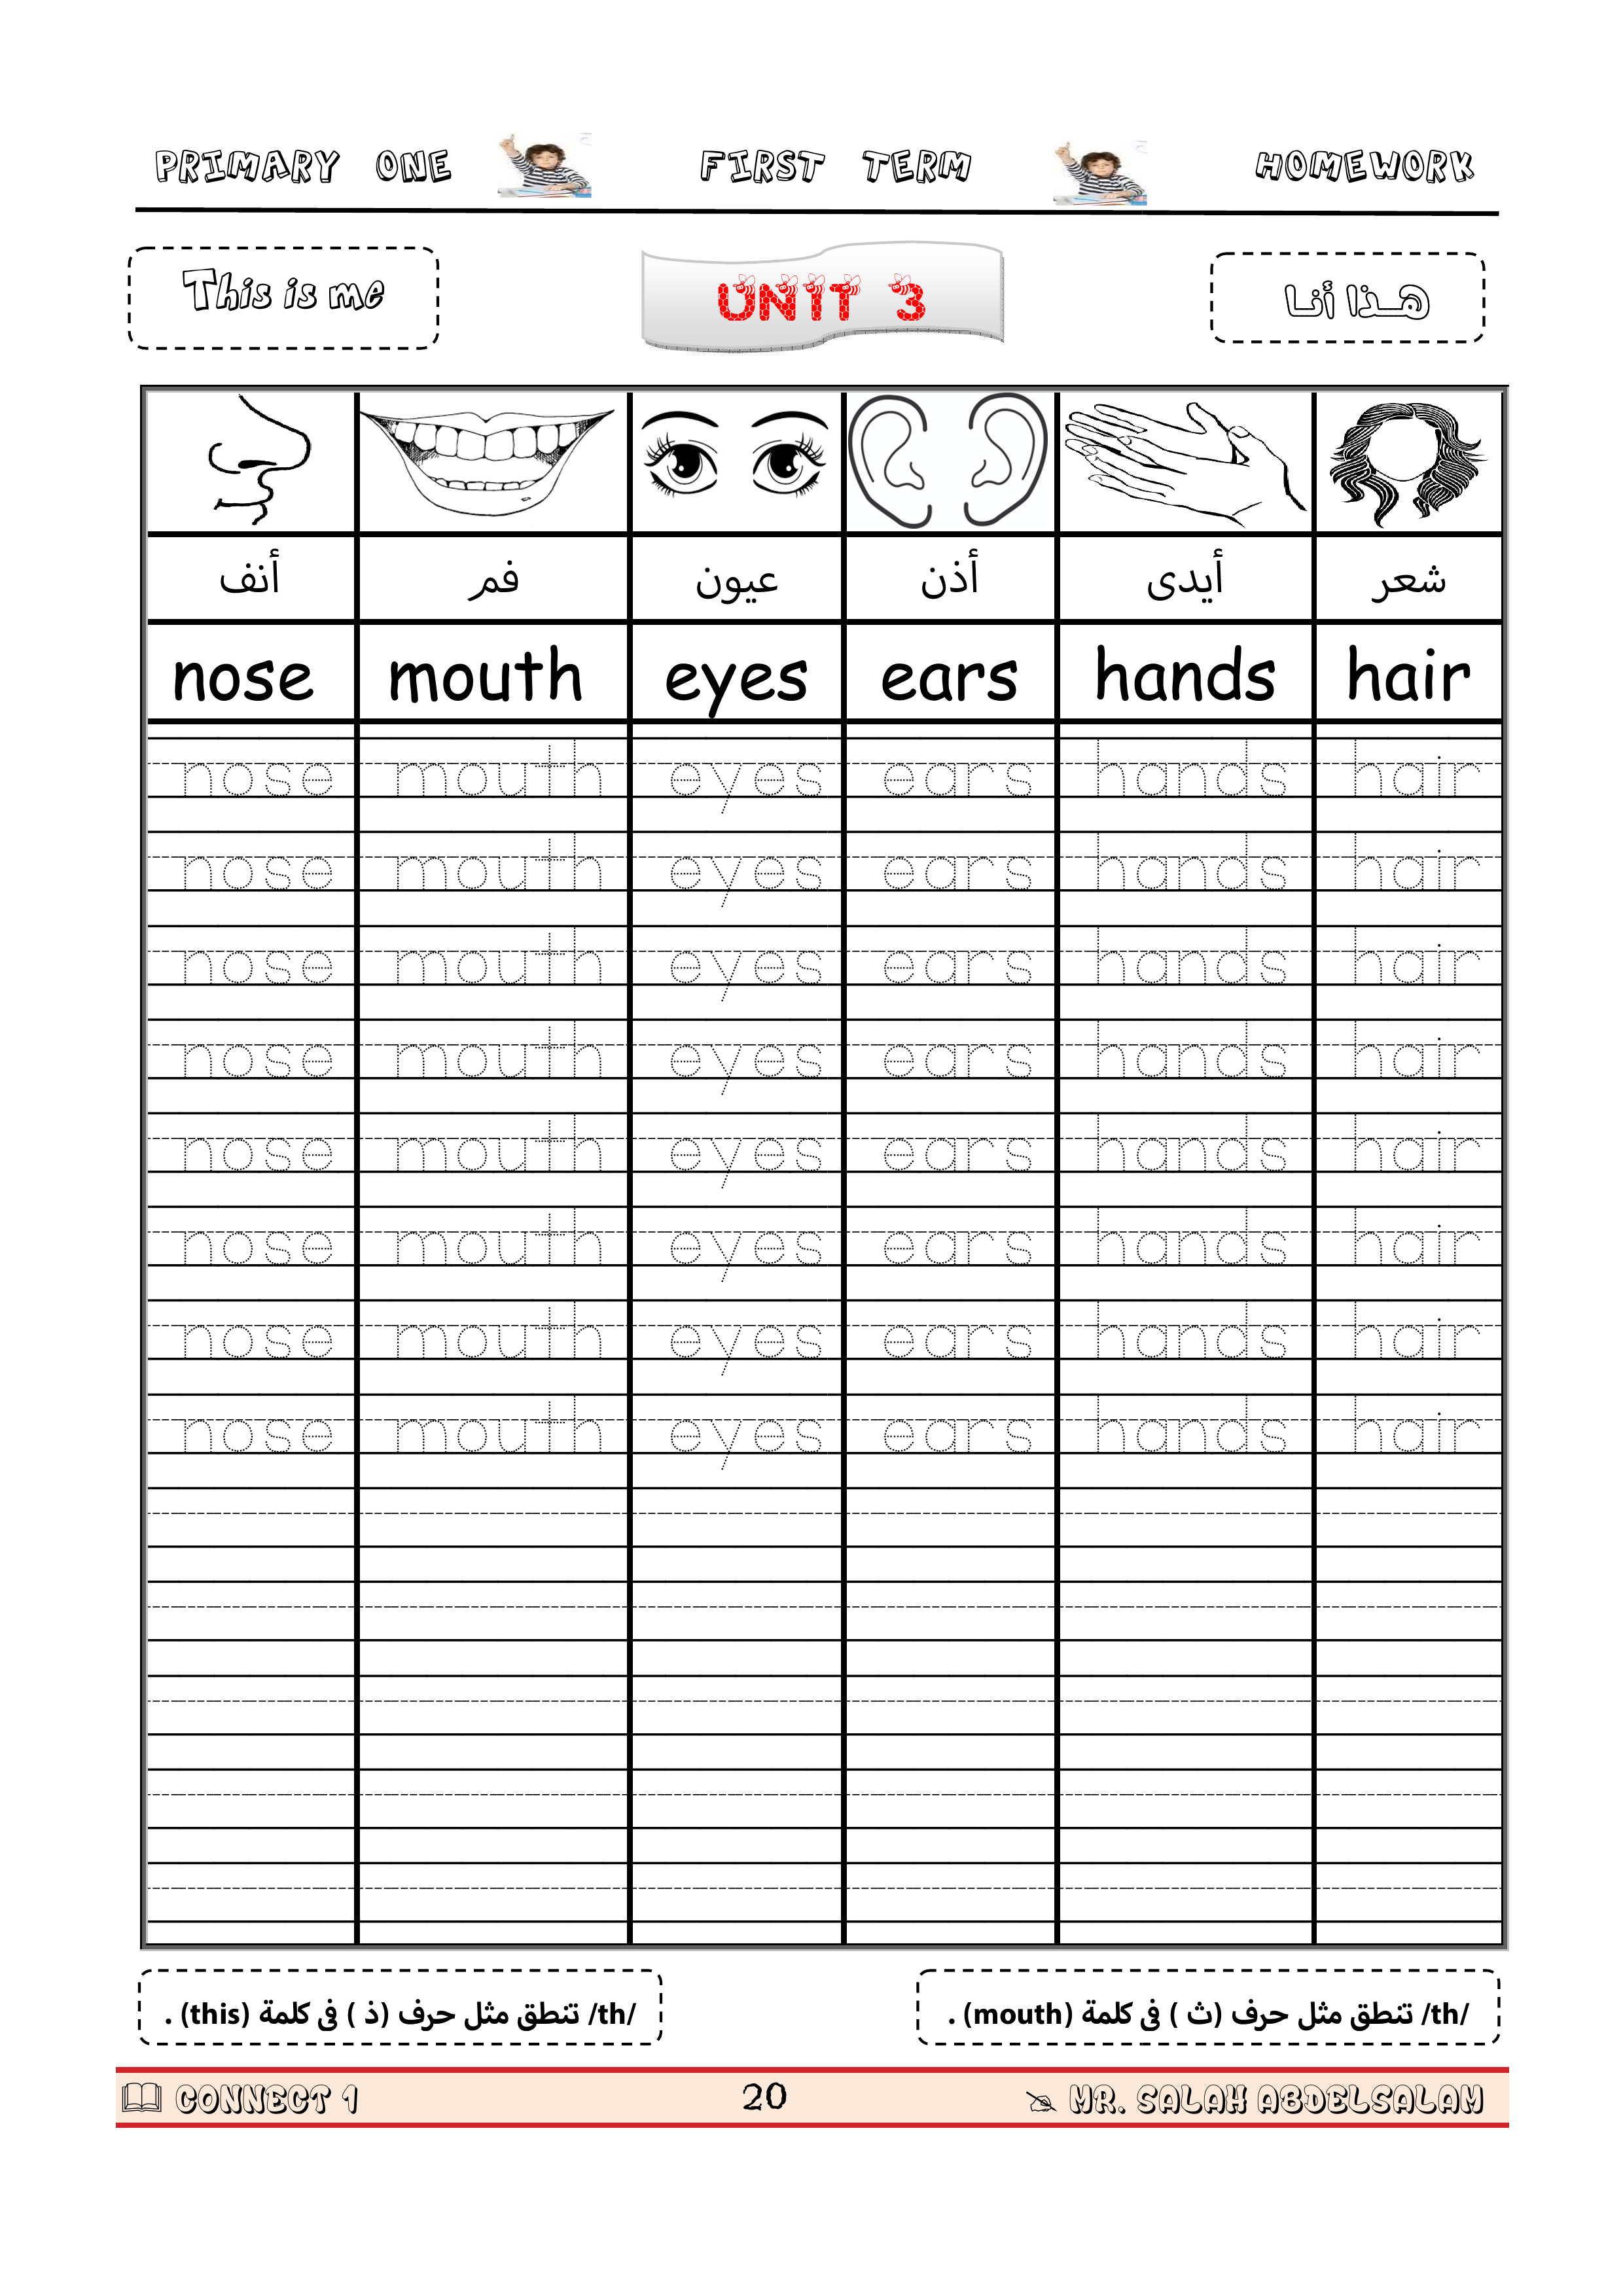 PRIMARY ONE FIRST TERM HOMEWORK
This is me UNIT 3 هـذا أنـا
أنف فم عيون أذن أيدى شعر
nose mouth eyes ears hands hair
nose mouth eyes ears hands hair
nose mouth eyes ears hands hair
nose mouth eyes ears hands hair
nose mouth eyes ears hands hair
nose mouth eyes ears hands hair
nose mouth eyes ears hands hair
nose mouth eyes ears hands hair
nose mouth eyes ears hands hair
/th/ تنطق مثل حرف (ذ ) فى كلمة (this) .
/th/ تنطق مثل حرف (ث ) فى كلمة (mouth) .
CONNECT 1 20 MR. SALAH ABDELSALAM